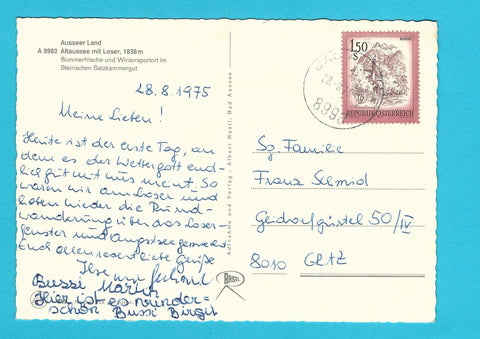 Ausseer Land
A 8992 Altaussee mit Loser, 1838 m
Sommerfrische und Wintersportort im
Steirischen Salzkammergut
28.8.1975
Meine Lieben!
Heute ist der erste Tag, an
dem es der Wettergott end-
lich gut mit uns meint. So
waren wir am Loser und
haben wieder die Rund-
wanderung über das Loser-
fenster und Augstsee gemacht.
Euch allen recht liebe Grüße
Ihre
Bussi Martin
Hier ist es wunder=
schön Bussi Birgit
Aufnahme und Verlag: Albert Rastl, Bad Aussee
RASTL
1.50
S
REPUBLIK ÖSTERREICH
899
Fam
Franz Schmid
50/IV
8010 GRAZ